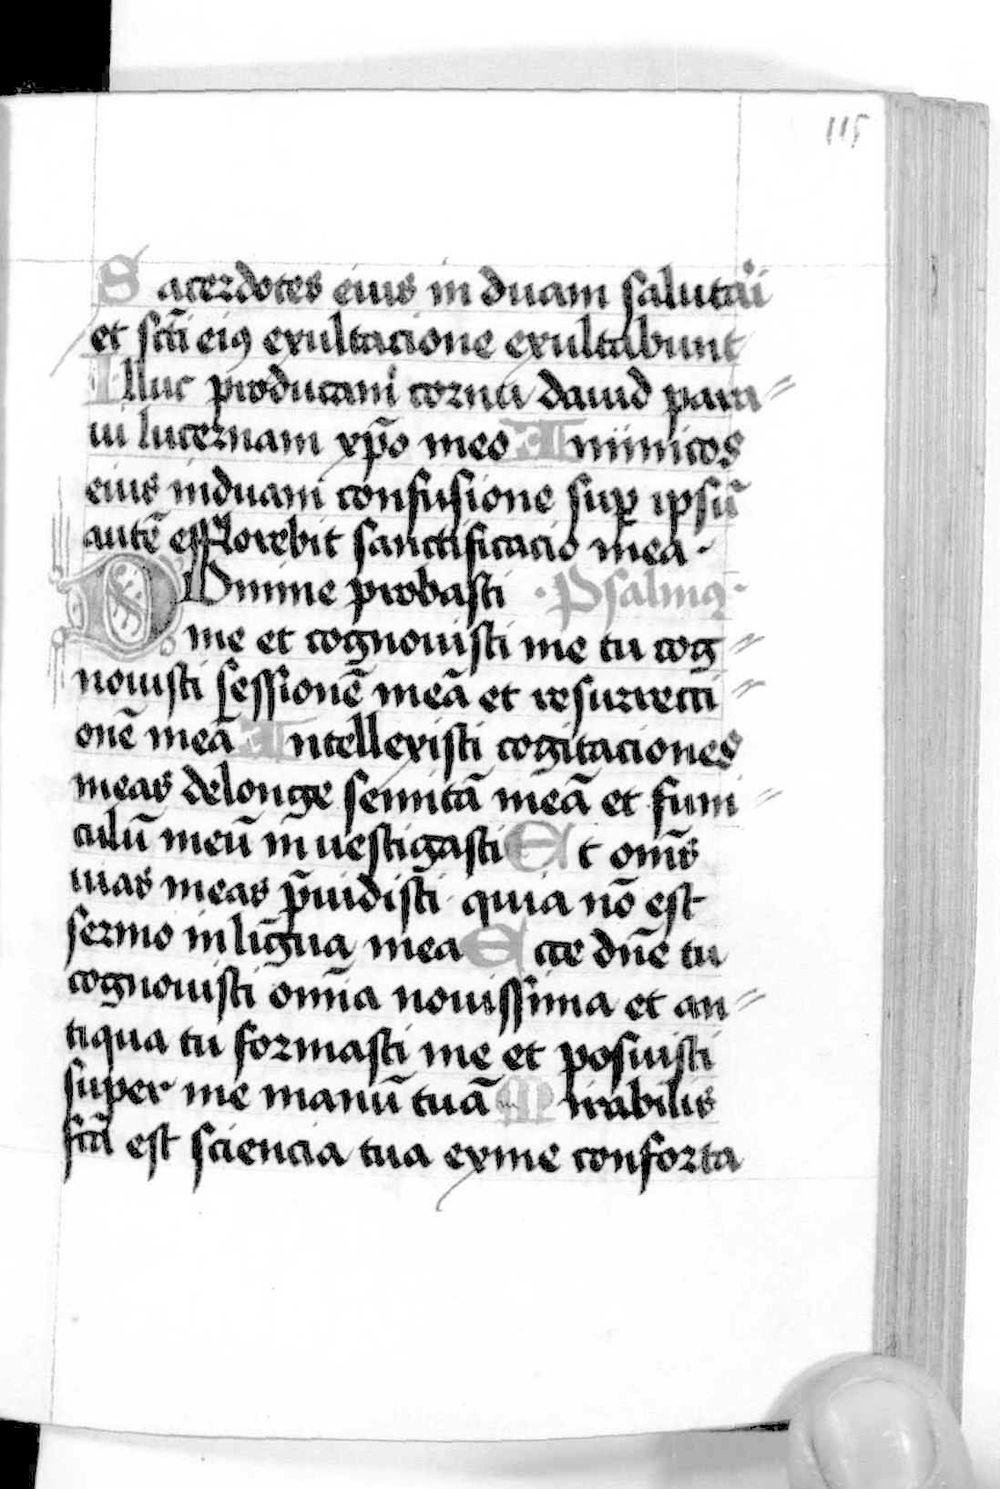 115
Sacerdotes eius in duam salutari
et scti eiꝰ exultacione exultabunt
Illuc producam cornu dauid para
ui lucernam xp̄o meo Inimicos
eius induam confusione sup̱ ipsū
autē efflorebit sanctificacio mea·
Domine probasti ·Psalmꝰ·
me et cognouisti me tu cog
nouisti sessionē meā et resurrecti
onē meā Intellexisti cogitaciones
meas delonge semitā meā et funi
culū meū in uestigasti Et om̄s
uias meas p̄uidisti quia nō est
sermo in lingua mea Ecce dn̄e tu
cognouisti omīa nouissima et an
tiqua tu formasti me et posuisti
super me manū tuā Mirabilis
fc̄ā est sciencia tua exme conforta